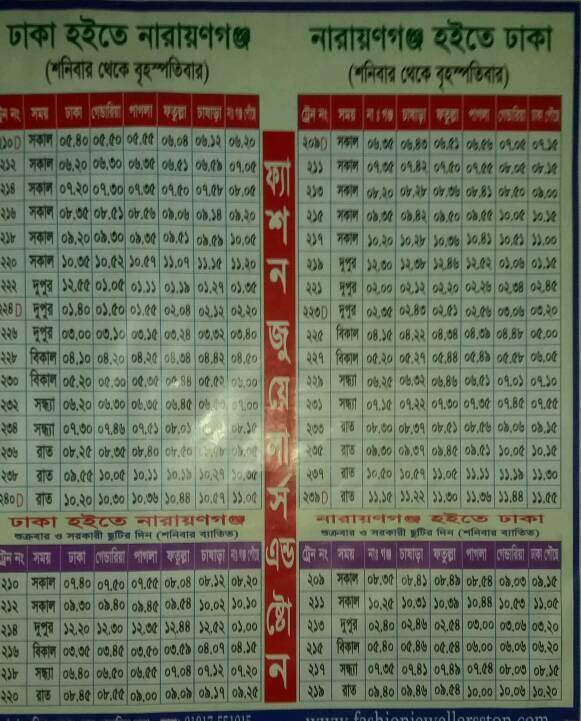 ঢাকা হইতে নারায়ণগঞ্জ
(শনিবার থেকে বৃহস্পতিবার)
ট্রেন নং সময় ঢাকা গেন্ডারিয়া পাগলা ফতুল্লা চাষাড়া না:গঞ্জ পৌঁছে
২১০D সকাল ০৫.৪০ ০৫.৫০ ০৫.৫৫ ০৬.০৪ ০৬.১২ ০৬.২০
২১২ সকাল ০৬.২০ ০৬.৩০ ০৬.৩৫ ০৬.৫১ ০৬.৫৯ ০৭.০৫
২১৪ সকাল ০৭.২০ ০৭.৩০ ০৭.৩৫ ০৭.৫০ ০৭.৫৮ ০৮.০৫
২১৬ সকাল ০৮.৩৫ ০৮.৫১ ০৮.৫৬ ০৯.০৬ ০৯.১৪ ০৯.২০
২১৮ সকাল ০৯.২০ ০৯.৩০ ০৯.৩৫ ০৯.৫১ ০৯.৫৯ ১০.০৫
২২০ সকাল ১০.৩৫ ১০.৫২ ১০.৫৭ ১১.০৭ ১১.১৫ ১১.২০
২২২ দুপুর ১২.৫৫ ০১.০৫ ০১.১১ ০১.১৯ ০১.২৭ ০১.৩৫
২২৪D দুপুর ০১.৪০ ০১.৫০ ০১.৫৫ ০২.০৪ ০২.১২ ০২.২০
২২৬ দুপুর ০৩.০০ ০৩.১০ ০৩.১৫ ০৩.২৪ ০৩.৩২ ০৩.৪০
২২৮ বিকাল ০৪.১০ ০৪.২০ ০৪.২৫ ০৪.৩৪ ০৪.৪২ ০৪.৫০
২৩০ বিকাল ০৫.২০ ০৫.৩০ ০৫.৩৫ ০৫.৪৪ ০৫.৫২ ০৬.০০
২৩২ সন্ধ্যা ০৬.২০ ০৬.৩০ ০৬.৩৫ ০৬.৪৫ ০৭.০০
২৩৪ সন্ধ্যা ০৭.৩০ ০৭.৪৬ ০৭.৫১ ০৮.০১ ০৮.১৫
২৩৬ রাত ০৮.২৫ ০৮.৩৫ ০৮.৪০ ০৮.৫০ ০৯.০৫
২৩৮ রাত ০৯.৫৫ ১০.০৫ ১০.১১ ১০.১৯ ১০.২৭ ১০.৩৫
২৪০D রাত ১০.২০ ১০.৩০ ১০.৩৬ ১০.৪৪ ১০.৫৭ ১১.০৫
ঢাকা হইতে নারায়ণগঞ্জ
শুক্রবার ও সরকারী ছুটির দিন (শনিবার ব্যতিত)
ট্রেন নং সময় ঢাকা গেন্ডারিয়া পাগলা ফতুল্লা চাষাড়া না:গঞ্জ পৌঁছে
২১০ সকাল ০৭.৪০ ০৭.৫০ ০৭.৫৫ ০৮.০৪ ০৮.১২ ০৮.২০
২১২ সকাল ০৯.৩০ ০৯.৪০ ০৯.৪৫ ০৯.৫৪ ১০.০২ ১০.১০
২১৪ দুপুর ১২.২০ ১২.৩০ ১২.৩৫ ১২.৪৪ ১২.৫২ ০১.০০
২১৬ বিকাল ০৩.৩৫ ০৩.৪৫ ০৩.৫০ ০৩.৫৯ ০৪.০৭ ০৪.১৫
২১৮ সন্ধ্যা ০৬.৪০ ০৬.৫০ ০৬.৫৫ ০৭.০৪ ০৭.১২ ০৭.২০
২২০ রাত ০৮.৪৫ ০৮.৫৫ ০৯.০০ ০৯.০৯ ০৯.১৭ ০৯.২৫
ফ্যাশন জুয়েলার্স এন্ড ষ্টোন
নারায়ণগঞ্জ হইতে ঢাকা
(শনিবার থেকে বৃহস্পতিবার)
ট্রেন নং সময় না:গঞ্জ চাষাড়া ফতুল্লা পাগলা গেন্ডারিয়া ঢাকা পৌঁছে
২০৯D সকাল ০৬.৩৫ ০৬.৪৩ ০৬.৫১ ০৬.৫৬ ০৭.০৫ ০৭.১৫
২১১ সকাল ০৭.৩৫ ০৭.৪২ ০৭.৫০ ০৭.৫৫ ০৮.০৫ ০৮.১৫
২১৩ সকাল ০৮.২০ ০৮.২৮ ০৮.৩৬ ০৮.৪১ ০৮.৫০ ০৯.০০
২১৫ সকাল ০৯.৩৫ ০৯.৪২ ০৯.৫০ ০৯.৫৫ ১০.০৫ ১০.১৫
২১৭ সকাল ১০.২০ ১০.২৮ ১০.৩৬ ১০.৪১ ১০.৫১ ১১.০০
২১৯ দুপুর ১২.৩০ ১২.৩৮ ১২.৪৬ ১২.৫২ ০১.০৬ ০১.১৫
২২১ দুপুর ০২.০০ ০২.১২ ০২.২০ ০২.২৬ ০২.৩৪ ০২.৪৫
২২৩D দুপুর ০২.৩৫ ০২.৪৩ ০২.৫১ ০২.৫৬ ০৩.০৬ ০৩.২০
২২৫ বিকাল ০৪.১৫ ০৪.২২ ০৪.৩৪ ০৪.৩৯ ০৪.৪৮ ০৫.০০
২২৭ বিকাল ০৫.২০ ০৫.২৭ ০৫.৪৪ ০৫.৪৯ ০৫.৫৮ ০৬.০৫
২২৯ সন্ধ্যা ০৬.২৫ ০৬.৩২ ০৬.৪৬ ০৬.৫১ ০৭.০১ ০৭.১০
২৩১ সন্ধ্যা ০৭.১৫ ০৭.২২ ০৭.৩০ ০৭.৩৫ ০৭.৪৫ ০৭.৫৫
২৩৩ রাত ০৮.৩০ ০৮.৩৭ ০৮.৫১ ০৮.৫৬ ০৯.০৬ ০৯.১৫
২৩৫ রাত ০৯.৩০ ০৯.৩৭ ০৯.৪৫ ০৯.৫১ ১০.০৫ ১০.১৫
২৩৭ রাত ১০.৫০ ১০.৫৭ ১১.০৫ ১১.১১ ১১.১৯ ১১.৩০
২৩৯D রাত ১১.১৫ ১১.২২ ১১.৩০ ১১.৩৬ ১১.৪৪ ১১.৫৫
নারায়ণগঞ্জ হইতে ঢাকা
শুক্রবার ও সরকারী ছুটির দিন (শনিবার ব্যতিত)
ট্রেন নং সময় না:গঞ্জ চাষাড়া ফতুল্লা পাগলা গেন্ডারিয়া ঢাকা পৌঁছে
২০৯ সকাল ০৮.৩৫ ০৮.৪১ ০৮.৪৯ ০৮.৫৪ ০৯.০৩ ০৯.১৫
২১১ সকাল ১০.২৫ ১০.৩১ ১০.৩৯ ১০.৪৪ ১০.৫৩ ১১.০৫
২১৩ দুপুর ০২.৪০ ০২.৪৬ ০২.৫৪ ০৩.০০ ০৩.০৬ ০৩.২০
২১৫ বিকাল ০৫.৪০ ০৫.৪৬ ০৫.৫৪ ০৬.০০ ০৬.০৬ ০৬.২০
২১৭ সন্ধ্যা ০৭.৩৫ ০৭.৪১ ০৭.৪৯ ০৭.৫৪ ০৮.০৩ ০৮.১৫
২১৯ রাত ০৯.৪০ ০৯.৪৬ ০৯.৫৪ ১০.০০ ১০.০৬ ১০.২০